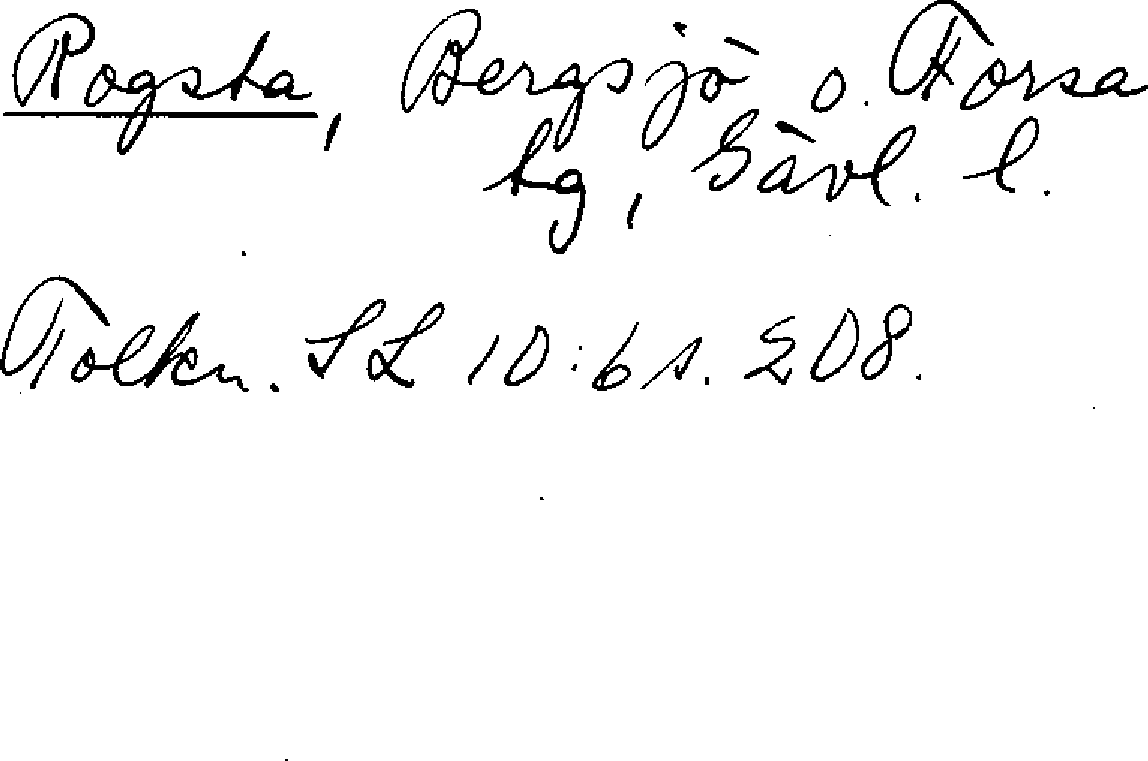 Rogsta, Bergsjö o. Forsa
tg, Gävl. l.
Tolkn. SL 10:6 s. 208.